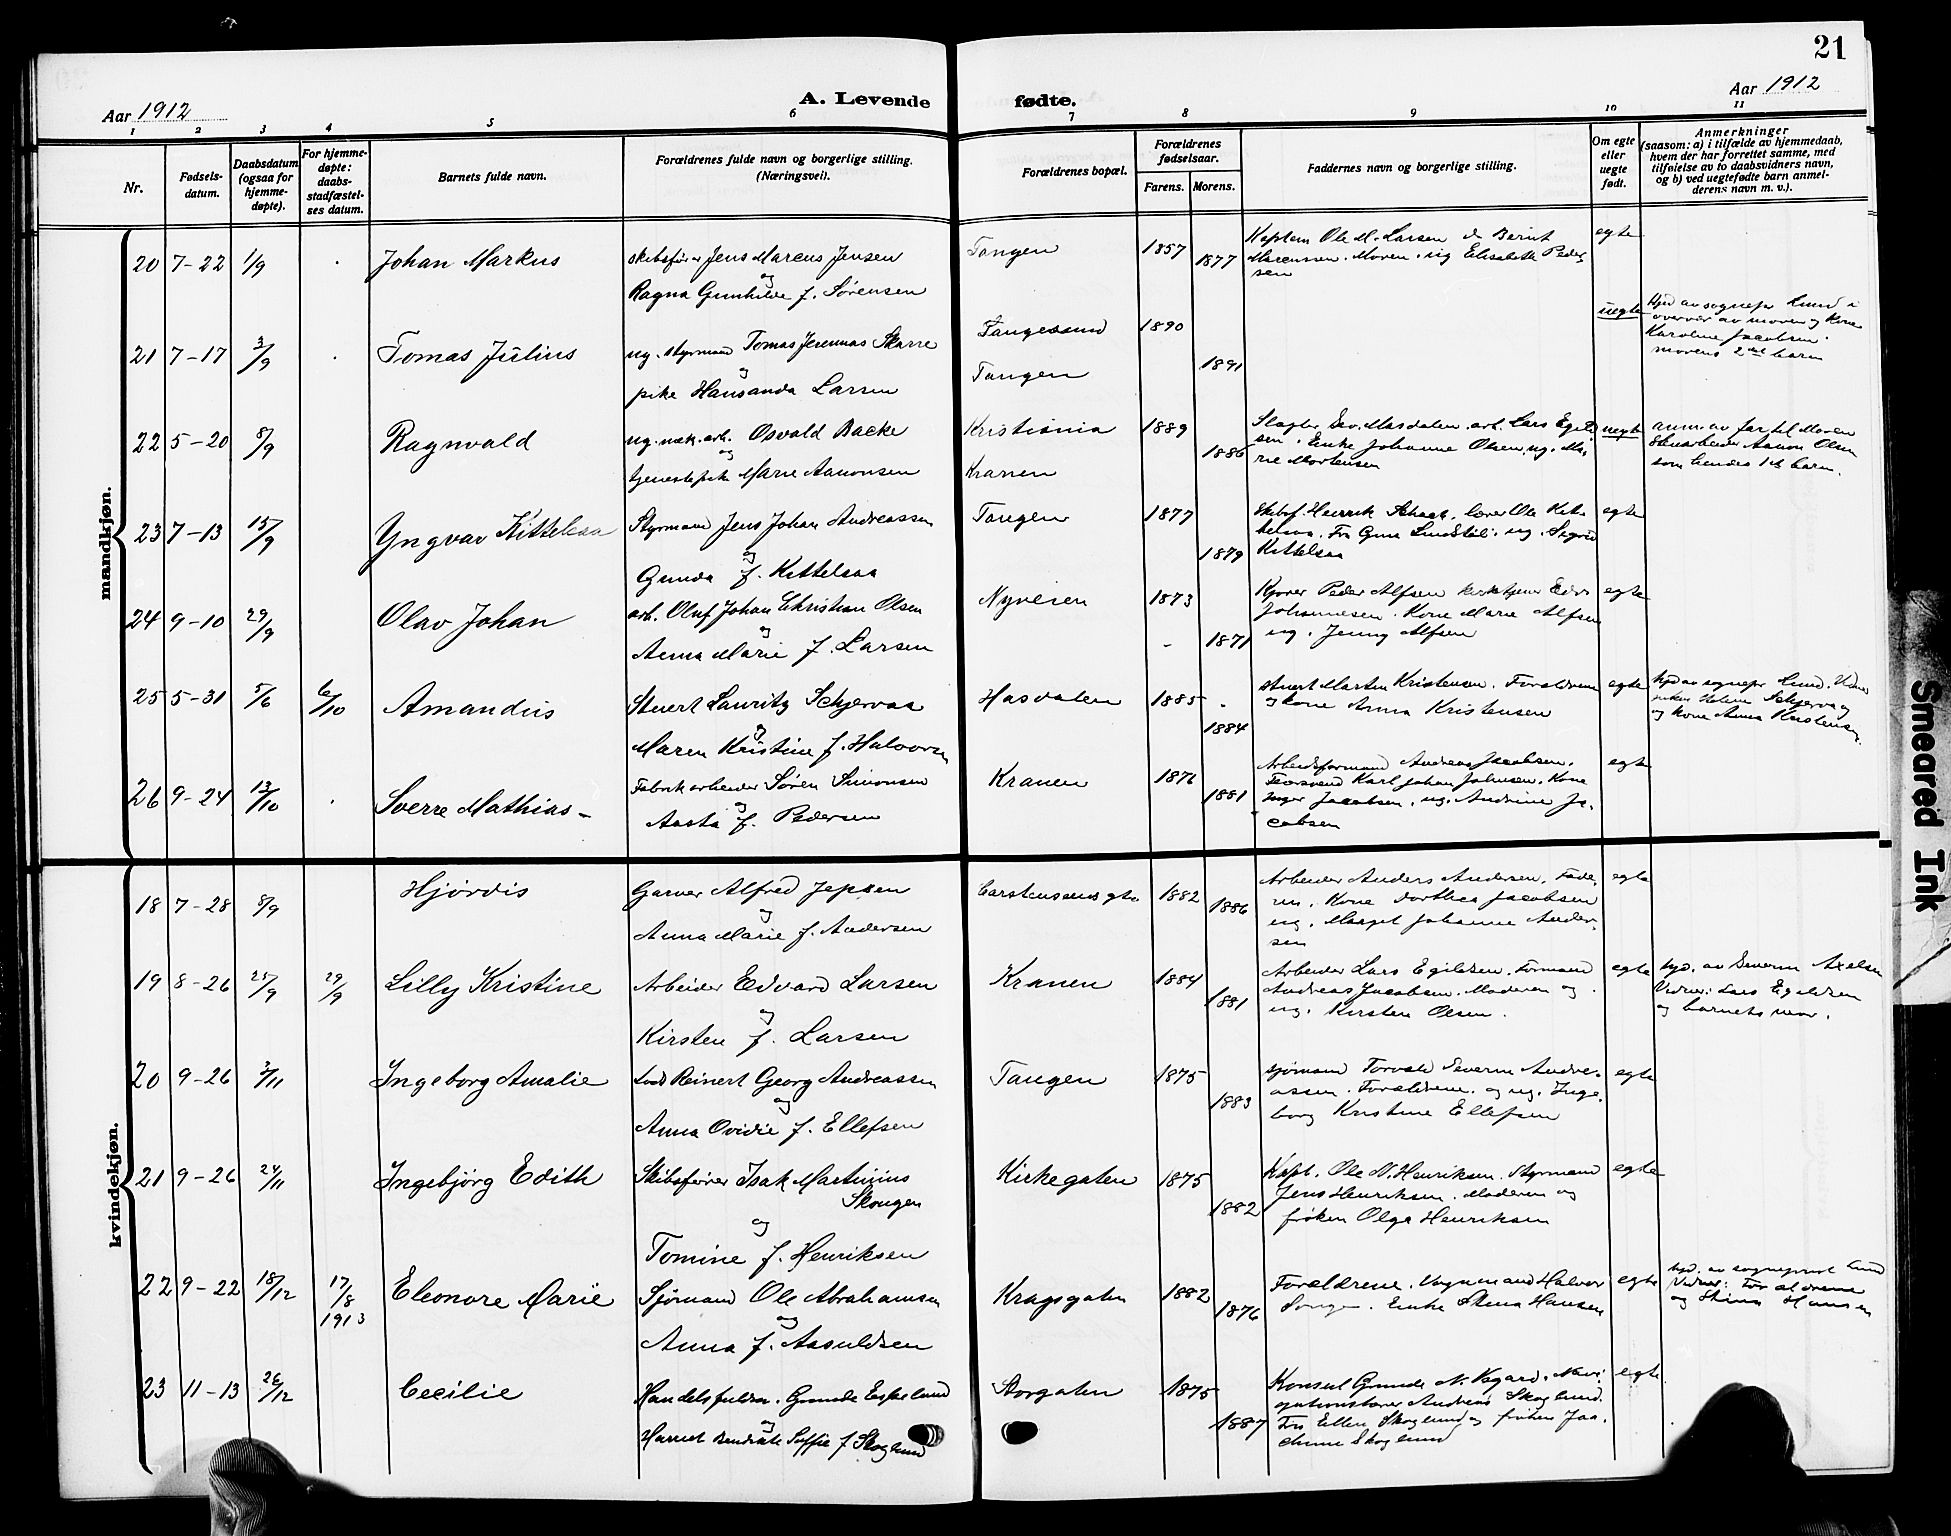 21
Aar 1912
A. Levende
fødte.
Aar 1912
1 2 3 4 5 6 7 8 9 10 11
Nr.
Fødsels-
datum.
Daabsdatum
(ogsaa for
hjemme-
døpte).
For hjemme-
døpte:
daabs-
stadfæstel-
ses datum.
Barnets fulde navn.
Forældrenes fulde navn og borgerlige stilling.
(Næringsvei).
Forældrenes bopæl.
Forældrenes
fødselsaar.
Farens. Morens.
Faddernes navn og borgerlige stilling.
Om egte
eller
uegte
født.
Anmerkninger
(saasom: a) i tilfælde av hjemmedaab,
hvem der har forrettet samme, med
tilføielse av to daabsvidners navn,
og b) ved uegtefødte barn anmel-
derens navn m. v.).
mandkjøn.
20 7-22 1/9 Johan Markus
Jens Marcus Jensen
og
Ragna Gunhilde f. Sørensen
Tangen 1857 1877
Kaptein Ole M. Larsen & Bernt
Marcussen. Moren. ug Elisabeth Peder-
sen
egte
21 7-17 3/9 Tomas Julius
ug. styrmand Tomas Jeremias Skarre
og
pike Hansanda Larsen
Tangesund 1890
Tangen 1891
uegte
Hjd av sognepr Lund i
overvær av moren og Kone
Karoline Jacobsen.
morens 2det barn
22 5-20 8/9 Ragnvald
ug. mek. arb. Osvald Backe
og
tjenestepike Marie Aanonsen
Kristiania 1889
Kranen 1886
arb. Lars Egild-
sen. Enke Johanne Olsen, ug. Ma-
rie Mortensen
uegte
anm. av far til Moren
Stenarbeider Aanon Olsen
som hendes 1ste barn.
23 7-13 15/9 Yngvar Kittelsaa
Styrmand Jens Johan Andreassen
og
Gunda f. Kittelsaa
Tangen 1877 1879
Skibsf. Henrik Schack. lærer Ole Kit-
telsaa. Fru Lindstøl. ug. Sigrid
Kittelsaa
egte
24 9-10 29/9 Olav Johan
arb. Oluf Johan Christian Olsen
og
Anna Marie f. Larsen
Nyveien 1873 1871
Peder Alfsen
Johannesen. Kone Marie Alfsen
ug. Jenny Alfsen
egte
25 5-31 5/6 6/10 Amandus
Stuert Lauritz Schjervaa
og
Maren Kristine f. Halvorsen
Hasdalen 1885 1884
Stuert Morten Kristensen. Forældrene
og kone Anna Kristensen
egte
hjd av sognepr Lund.
og kone Anna Kristensen.
26 9-24 13/10 Sverre Mathias
Fabrikarbeider Søren Simonsen
og
Aasta f. Pedersen
Kranen 1876 1881
Arbeidsformand Andreas Jacobsen.
Karl Johan Johnsen. Kone
Inger Jacobsen. ug. Andrine Ja-
cobsen
egte
kvindekjøn.
18 7-28 8/9 Hjørdis
Garver Alfred Jepsen
og
Anna Marie f. Andersen
Carstensensgtn 1882 1886
Arbeider Anders Andersen. Fade-
ren. Kone Dorthea Jacobsen
ug. Margit Johanne Ander-
sen
egte
19 8-26 25/9 29/9 Lilly Kristine
Arbeider Edvard Larsen
og
Kirsten f. Larsen
Kranen 1884 1881
Arbeider Lars Egildsen. Formand
Andreas Jacobsen. Moderen og
ug. Kirsten Olsen.
egte
hjd. av Severin Axelsen
Vidner: Lars Egildsen
og barnets mor.
20 9-26 3/11 Ingeborg Amalie
Lods Reinert Georg Andreassen
og
Anna Ovidie f. Ellefsen
Tangen 1875 1883
sjømand Torvald Severin Andre-
assen. Forældrene. og ug. Inge-
borg Kristine Ellefsen
egte
21 9-26 24/11 Ingebjørg Edith
Skibsfører Isak Martinius
Skougen
og
Tomine f. Henriksen
Kirkegaten 1875 1882
Kapt. Ole N. Henriksen. Styrmand
Jens Henriksen. Moderen og
frøken Olga Henriksen
egte
22 9-22 18/12 17/8 1913 Eleonore Marie
Sjømand Ole Abrahamsen
og
Anna f. Aasuldsen
Kragsgaten 1882 1876
Forældrene. Vognmand Halvor
Songe. Enke Stina Hansen
egte
hjd. av sogneprest Lund
Vidner: Forældrene
og Stina Hansen
23 11-13 26/12 Cecilie
Handelsfuldm. Gunde Espelund
og
f. Skoglund
Storgaten 1875 1887
Konsul Gunde N. Vegard. Navi-
gationslærer Andreas Skoglund.
Fru Ellen Skoglund og frøken Joa-
chime Skoglund
egte
Smeared Ink